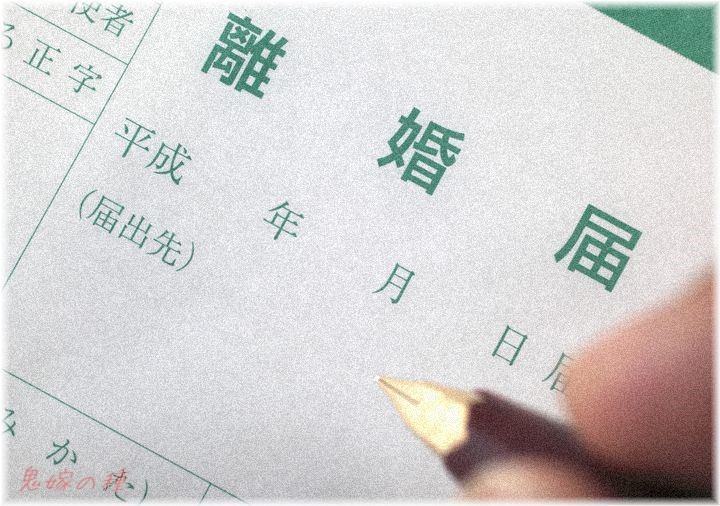 使者
る正字
離婚届
平成 年 月 日届
(届出先)
みかた)
鬼嫁の